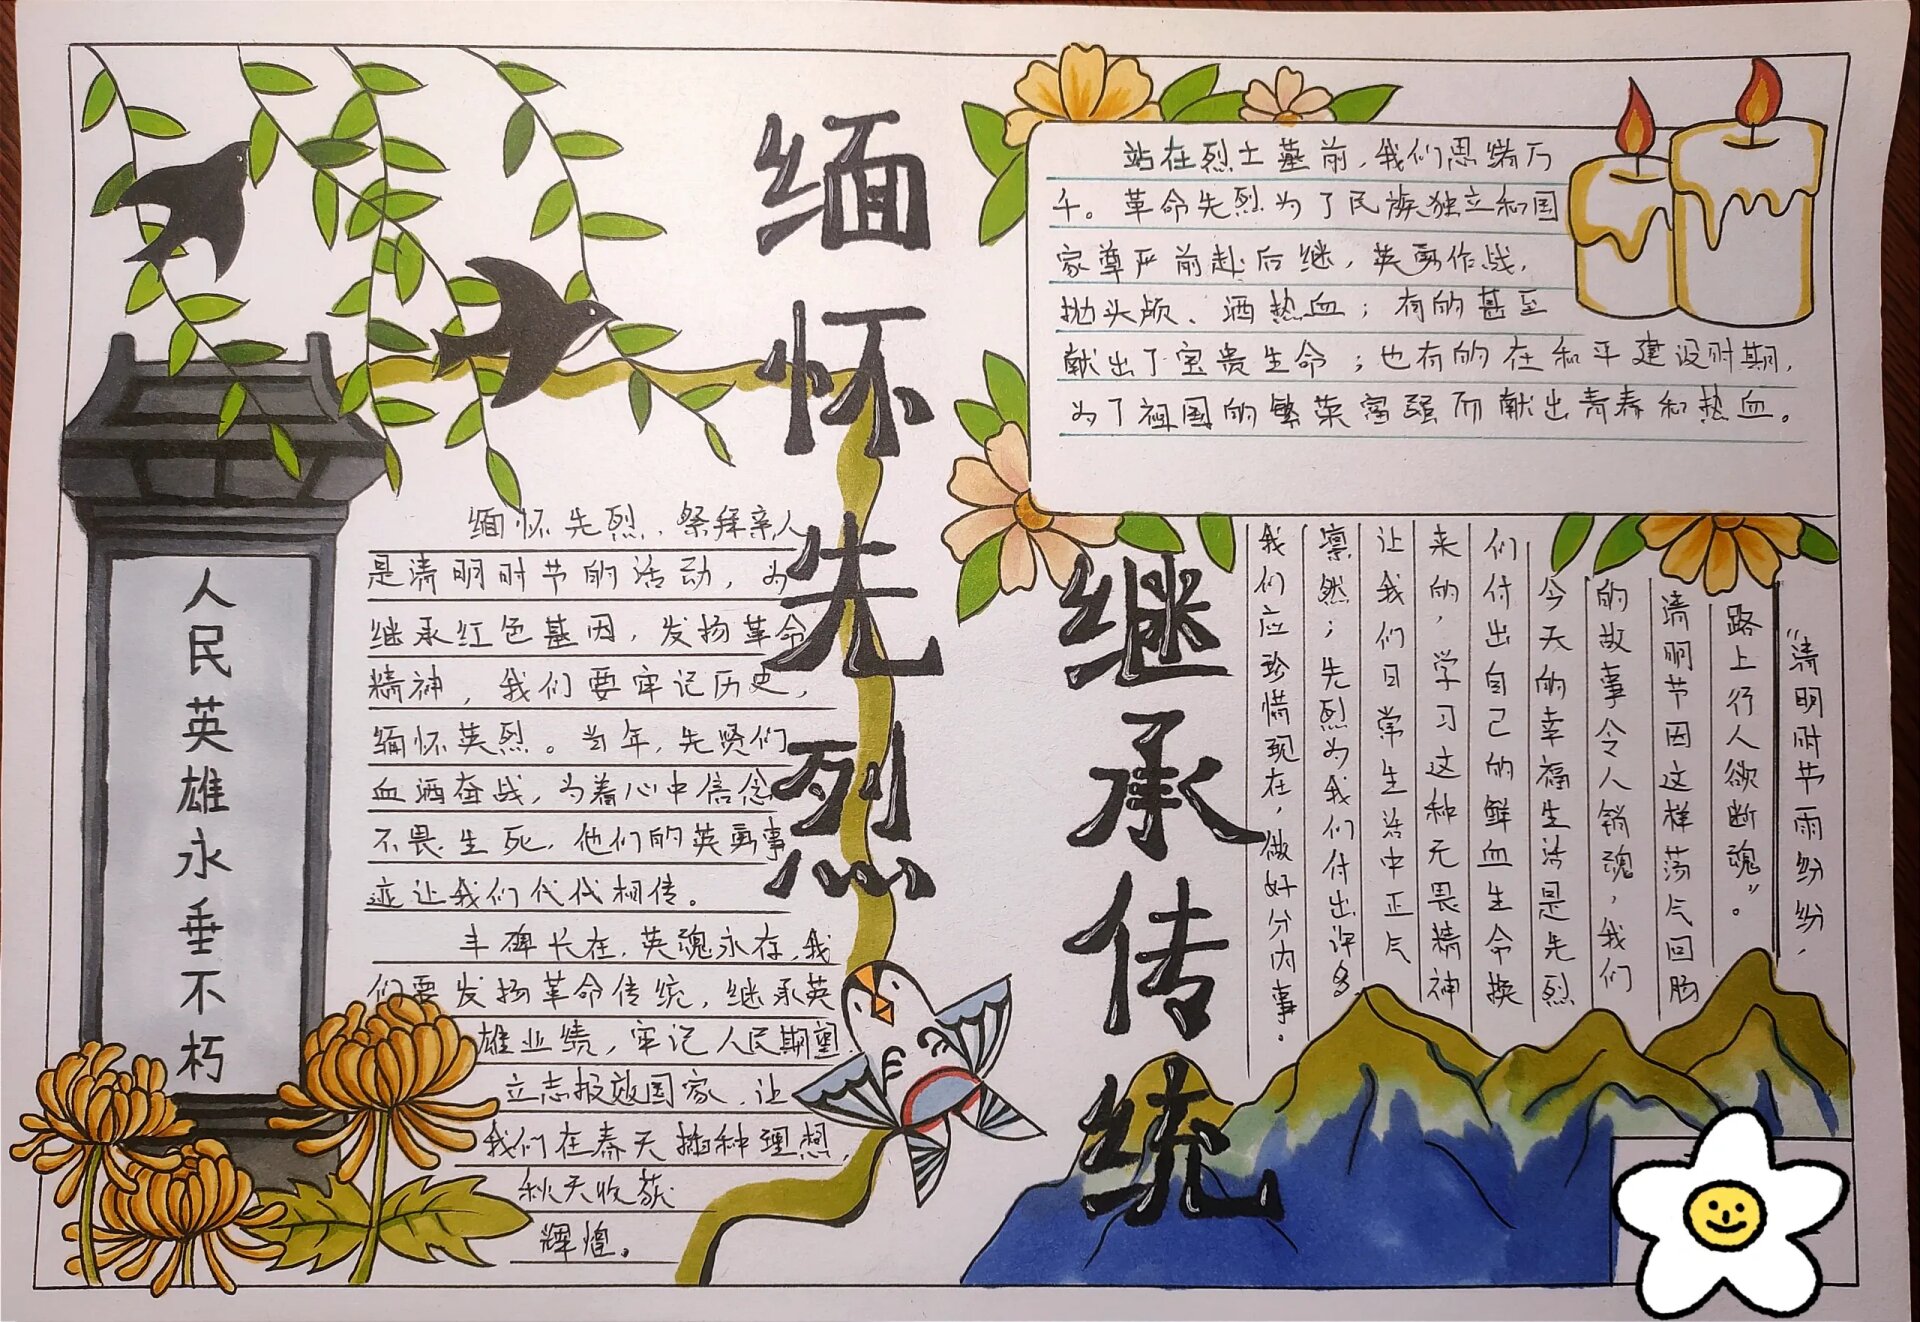 缅怀先烈
继承传统
人民英雄永垂不朽
缅怀先烈、祭拜亲人
是清明时节的活动，为
继承红色基因，发扬革命
精神，我们要牢记历史，
缅怀英烈。当年，先贤们
血洒奋战，为着心中信念
不畏生死，他们的英勇事
迹让我们代代相传。
丰碑长在，英魂永存，我
们要发扬革命传统，继承英
雄业绩，牢记人民期望，
立志报效国家，让
我们在春天播种理想，
秋天收获
辉煌。
站在烈士墓前，我们思绪万
千。革命先烈为了民族独立和国
家尊严前赴后继，英勇作战，
抛头颅、洒热血；有的甚至
献出了宝贵生命；也有的在和平建设时期，
为了祖国的繁荣富强而献出青春和热血。
“清明时节雨纷纷，
路上行人欲断魂”。
清明节因这样荡气回肠
的故事令人销魂，我们
今天的幸福生活是先烈
们付出自己的鲜血生命换
来的，学习这种无畏精神
让我们日常生活中正气
凛然；先烈为我们付出许多
我们应珍惜现在，做好分内事。